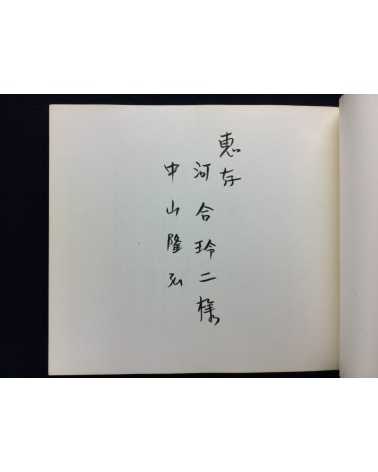 恵存
河合玲二様
中山隆弘